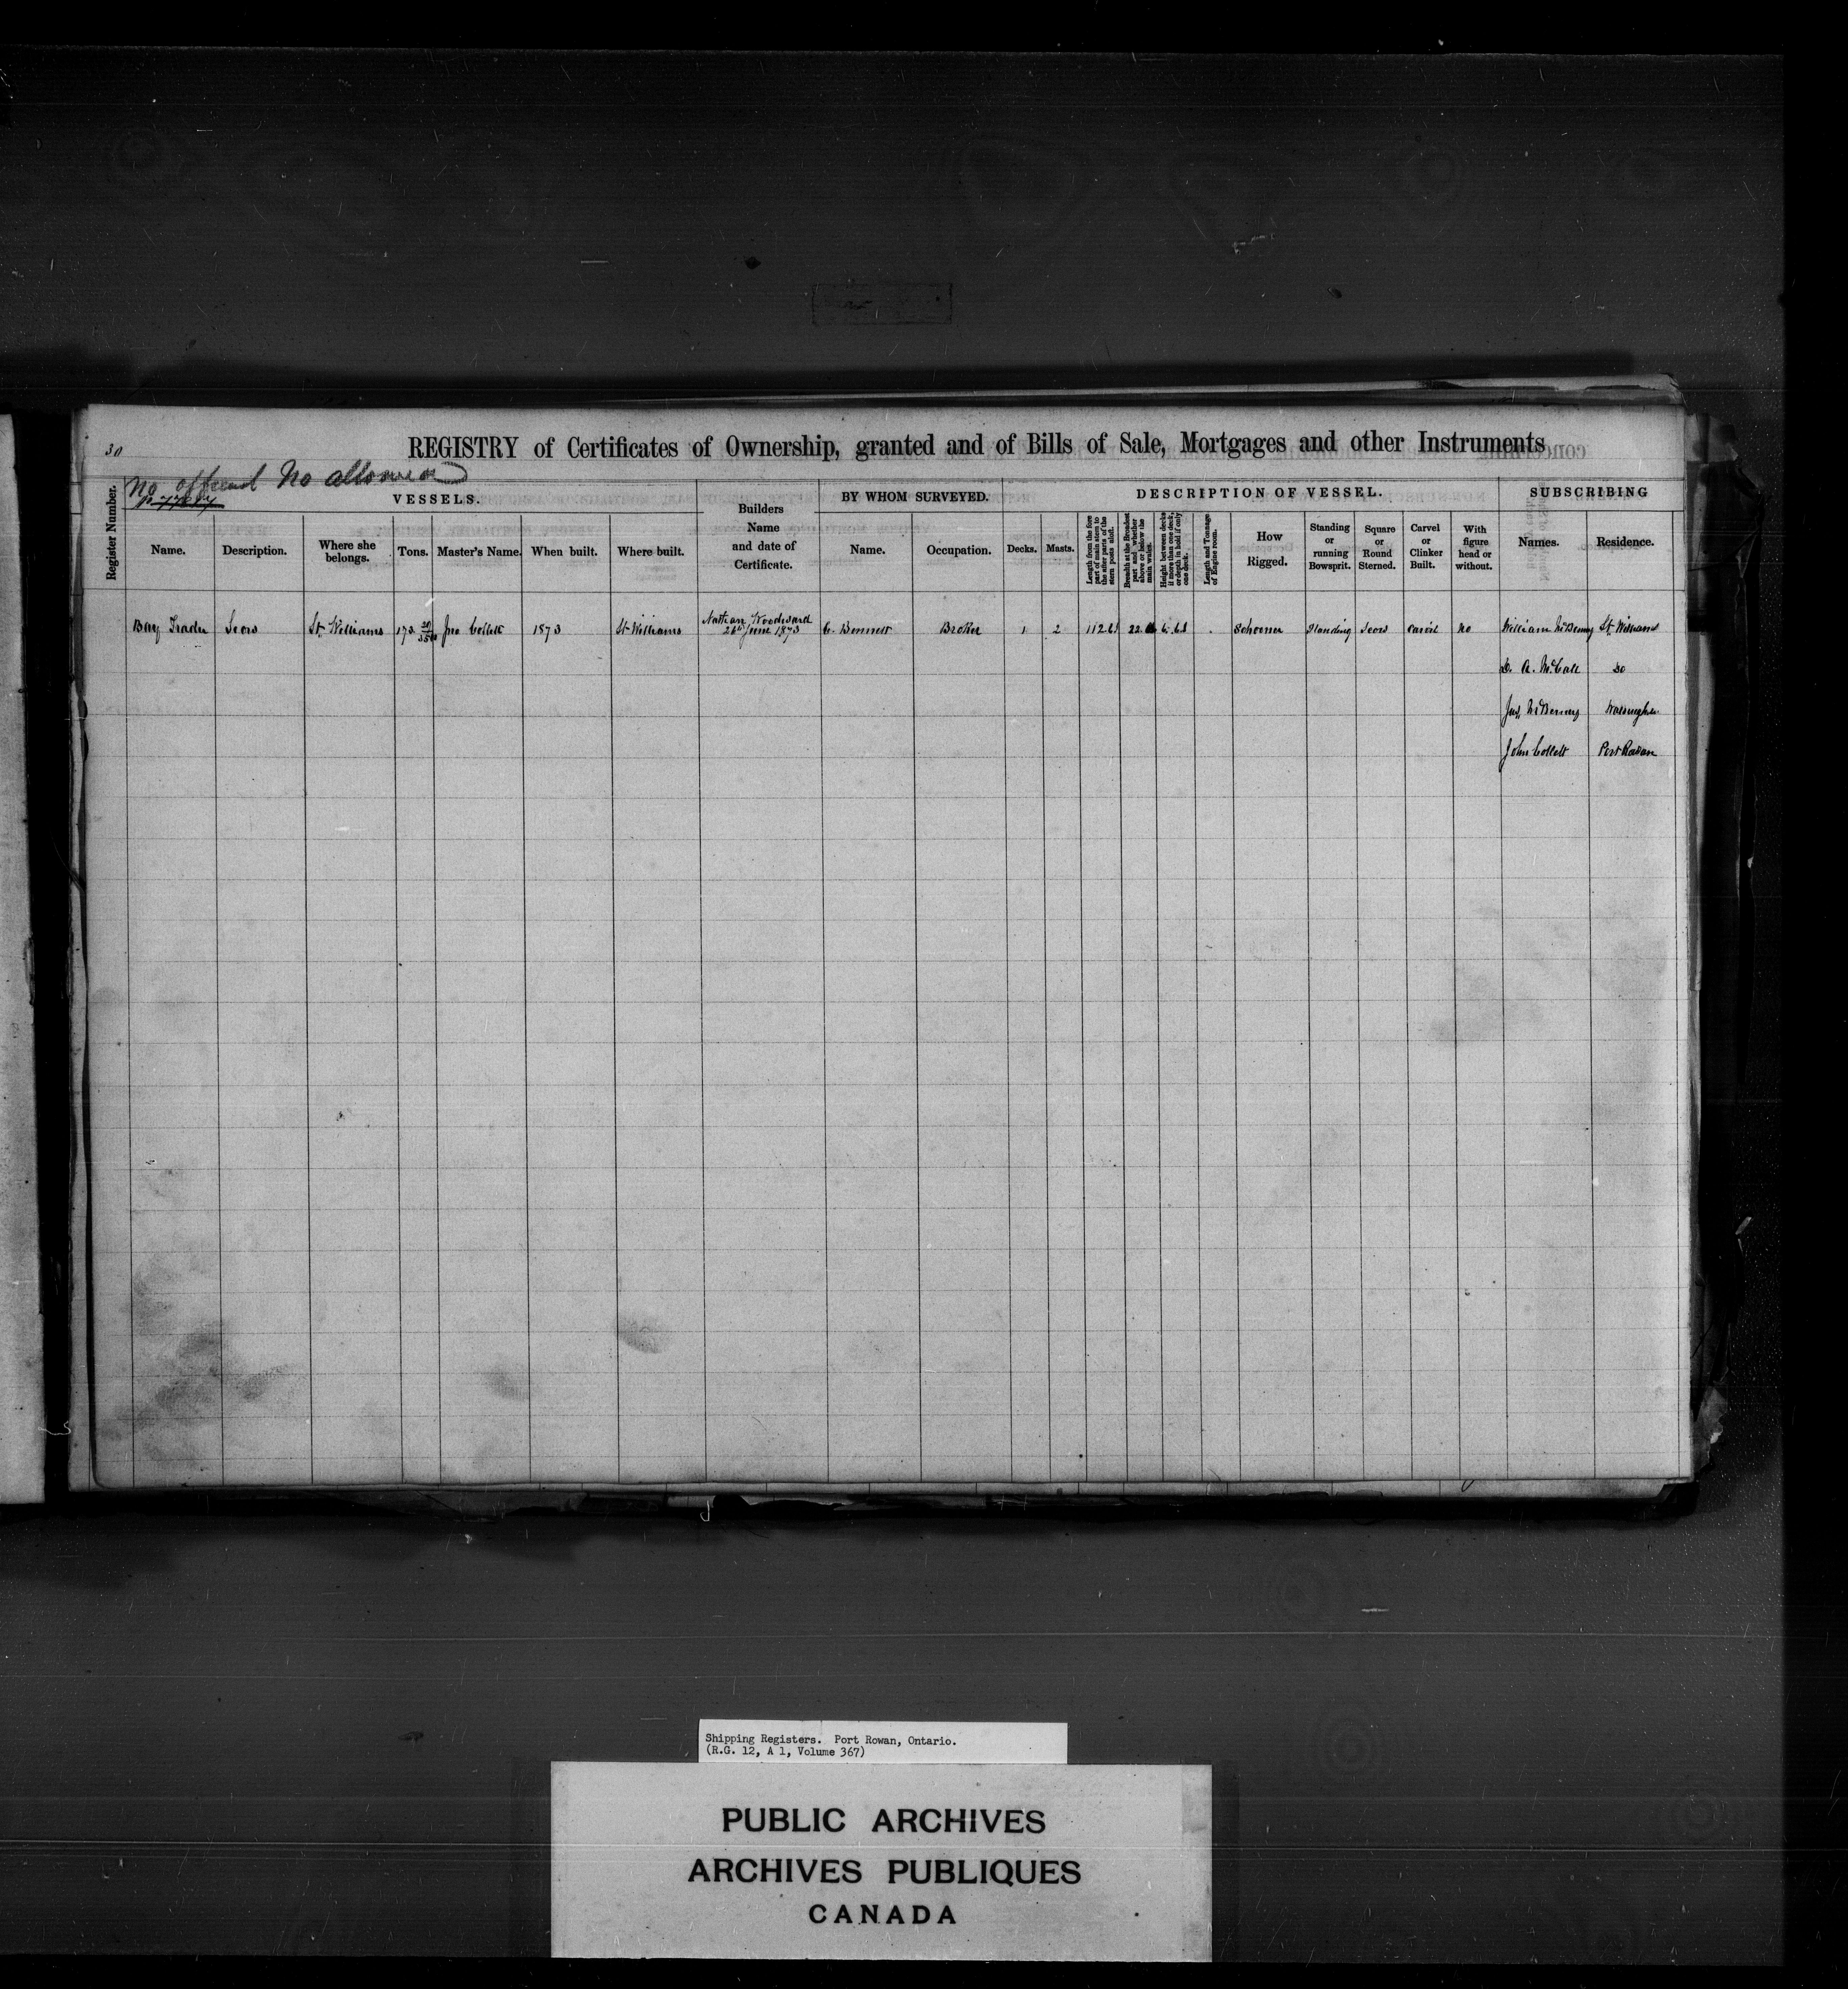 30
REGISTRY of Certificates of Ownership, granted and of Bills of Sale, Mortgages and other Instruments
No No allowed
Register Number.
VESSELS.
Builders Name and date of Certificate.
BY WHOM SURVEYED.
DESCRIPTION OF VESSEL.
SUBSCRIBING
Name.
Description.
Where she belongs.
Tons.
Master's Name.
When built.
Where built.
Name.
Occupation.
Decks.
Masts.
Length from the fore part of main stem to the after parts of the stern posts aloft.
Breadth at the Broadest part and whether above or below the main wales.
Height between decks if more than one deck, or depth in hold if only one deck.
Length and Tonnage of Engine room.
How Rigged.
Standing or running Bowsprit.
Square or Round Sterned.
Carvel or Clinker Built.
With figure head or without.
Names.
Residence.
Bay Trader Scow St. Williams Jno Collett 1873 St Williams Nathan Woodward June 1873 C. Bennett Broker 1 2 Schooner Standing Scow Carvil No William McBenny St. Williams
D. A. McCall Do
McBenny
John Collett Port Rowan
Shipping Registers. Port Rowan, Ontario.
(R.G. 12, A 1, Volume 367)
PUBLIC ARCHIVES
ARCHIVES PUBLIQUES
CANADA